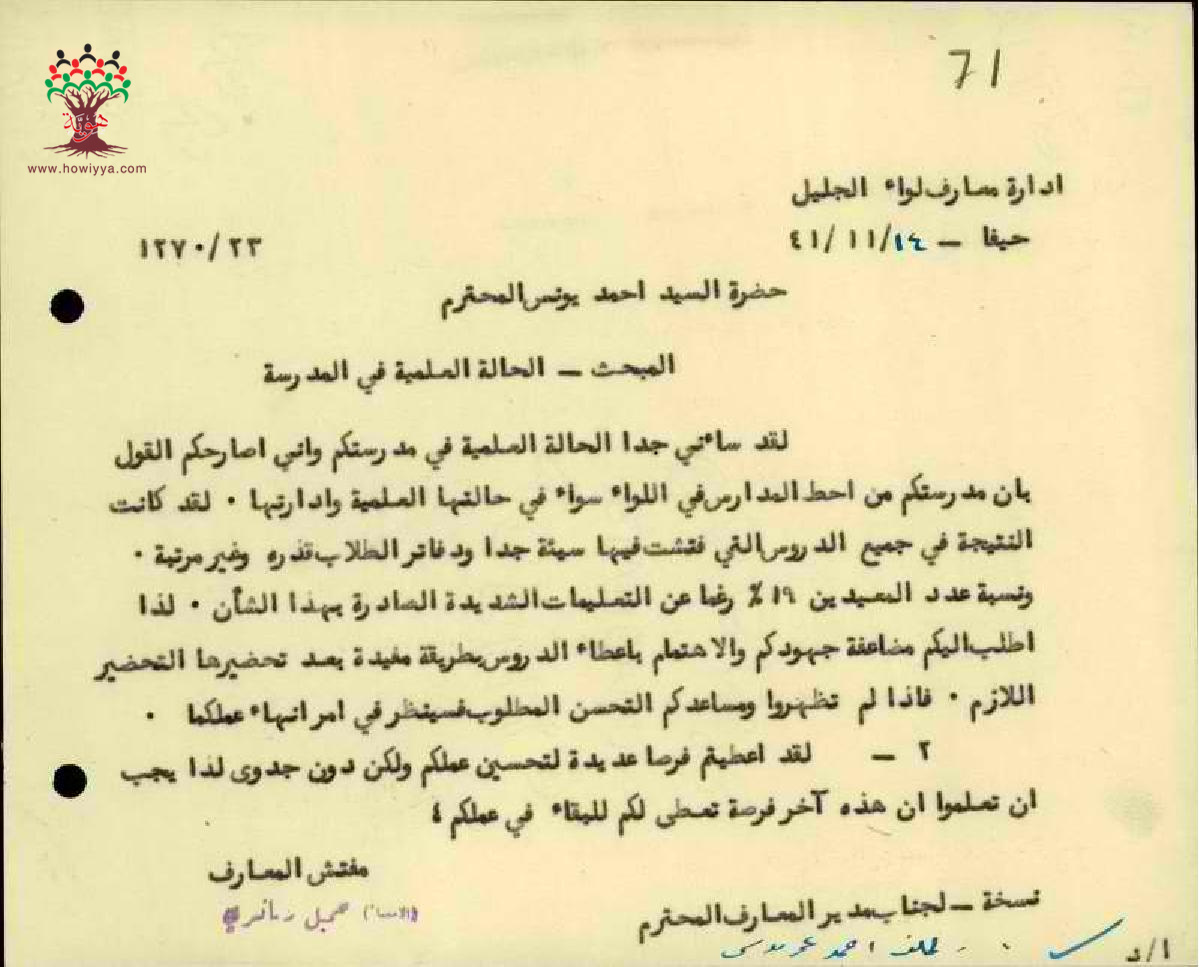 71
هوية
www.howiyya.com
ادارة معارف لواء الجليل
حيفا — ١٤/ ١١ /٤١
١٢٧٠/٢٣
حضرة السيد احمد يونس المحترم
المبحث — الحالة العلمية في المدرسة
لقد ساءني جدا الحالة العلمية في مدرستكم واني اصارحكم القول
بان مدرستكم من احط المدارس في اللواء سواء في حالتها العلمية وادارتها ٠ لقد كانت
النتيجة في جميع الدروس التي فتشت فيها سيئة جدا ودفاتر الطلاب قذره وغير مرتبة ٠
ونسبة عدد المعيدين ١٩ ٪ رغما عن التعليمات الشديدة الصادرة بهذا الشأن ٠ لذا
اطلب اليكم مضاعفة جهودكم والاهتمام باعطاء الدروس بطريقة مفيدة بعد تحضيرها التحضير
اللازم ٠ فاذا لم تظهروا ومساعدكم التحسن المطلوب فسينظر في امر انهاء عملكما ٠
٢ — لقد اعطيتم فرصا عديدة لتحسين عملكم ولكن دون جدوى لذا يجب
ان تعلموا ان هذه آخر فرصة تعطى لكم للبقاء في عملكم ٤
مفتش المعارف
جميل
نسخة — لجناب مدير المعارف المحترم
لملف احمد
ا/د